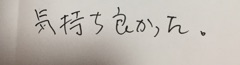 気持ち良かった。